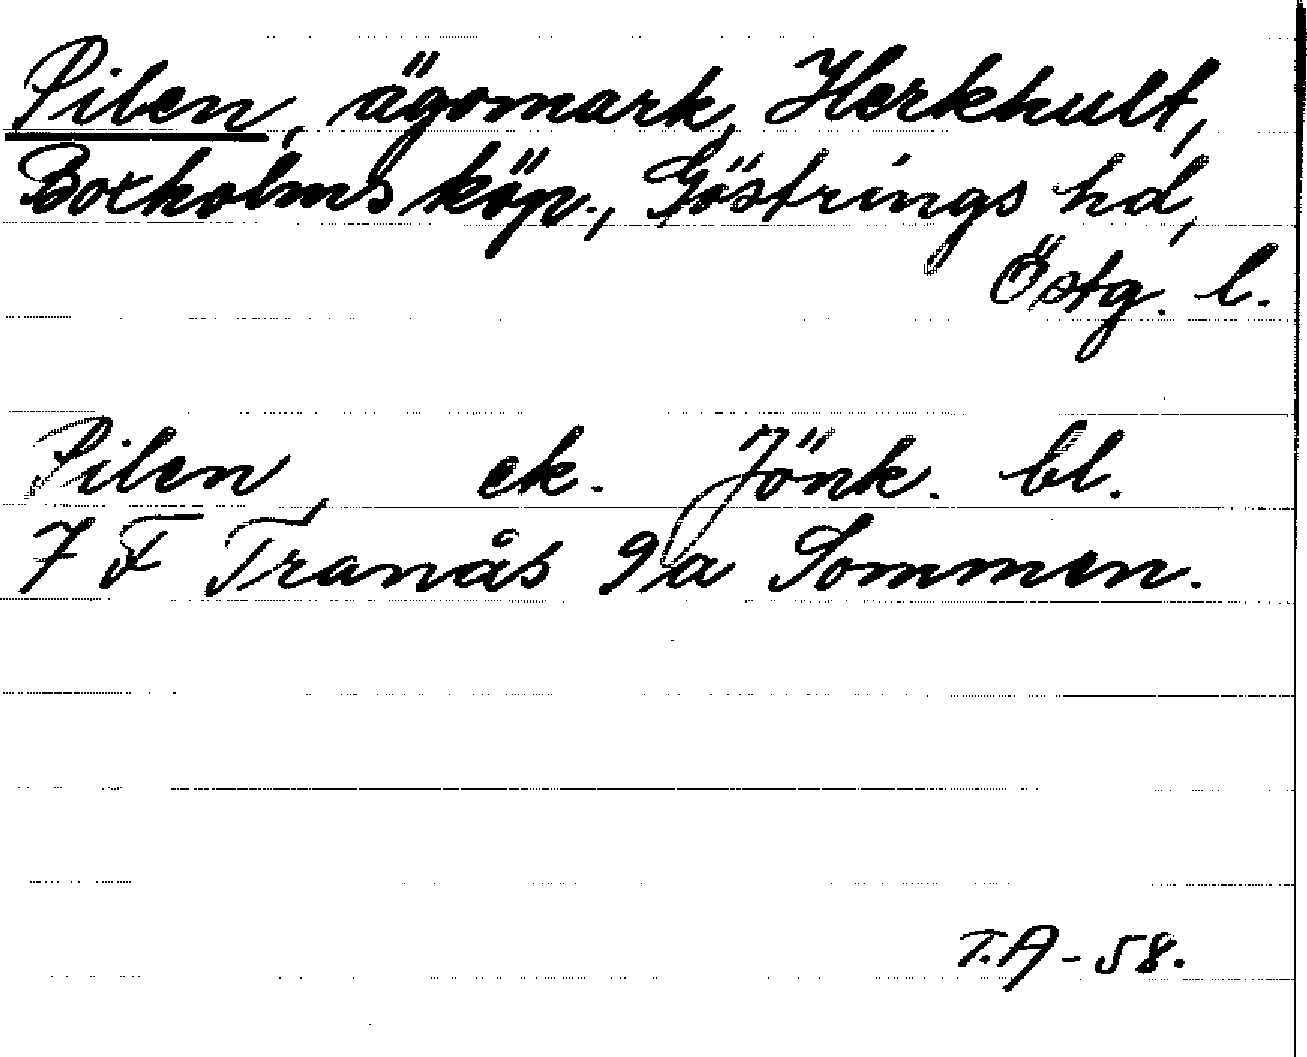 Pilen, ägomark, Herkhult,
Boxholms köp., Göstrings hd,
Östg. l.
Pilen, ek. Jönk. bl.
7 F Tranås 9a Sommen.
T.A - 58.